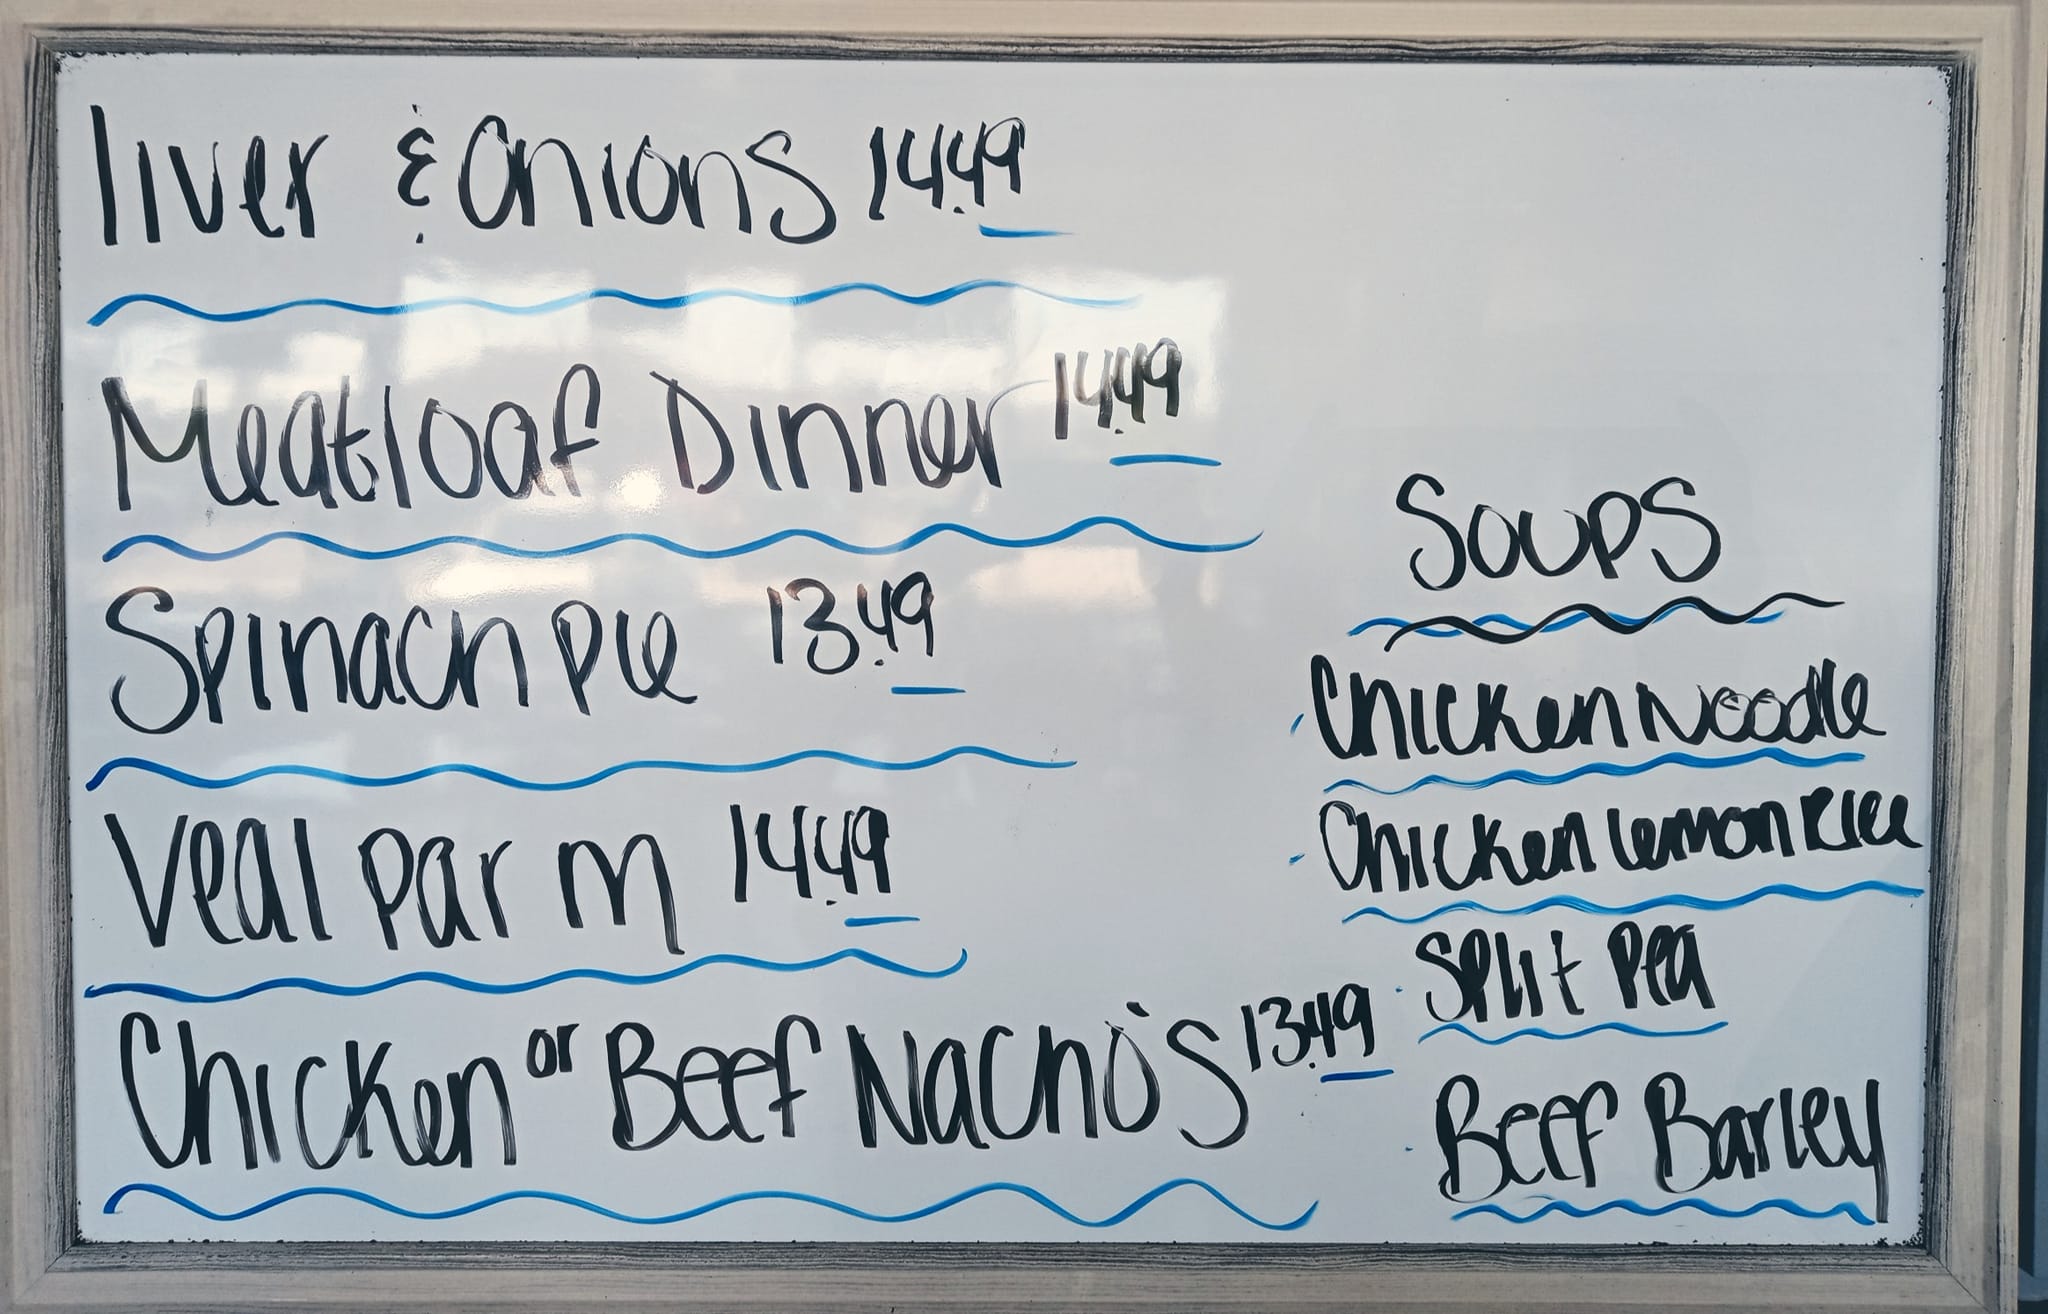 liver & Onions 14.49
Meatloaf Dinner 14.49
Spinach Pie 13.49
Veal Parm 14.49
Chicken or Beef Nacho's 13.49
Soups
Chicken Noodle
Chicken lemon Rice
Split Pea
Beef Barley